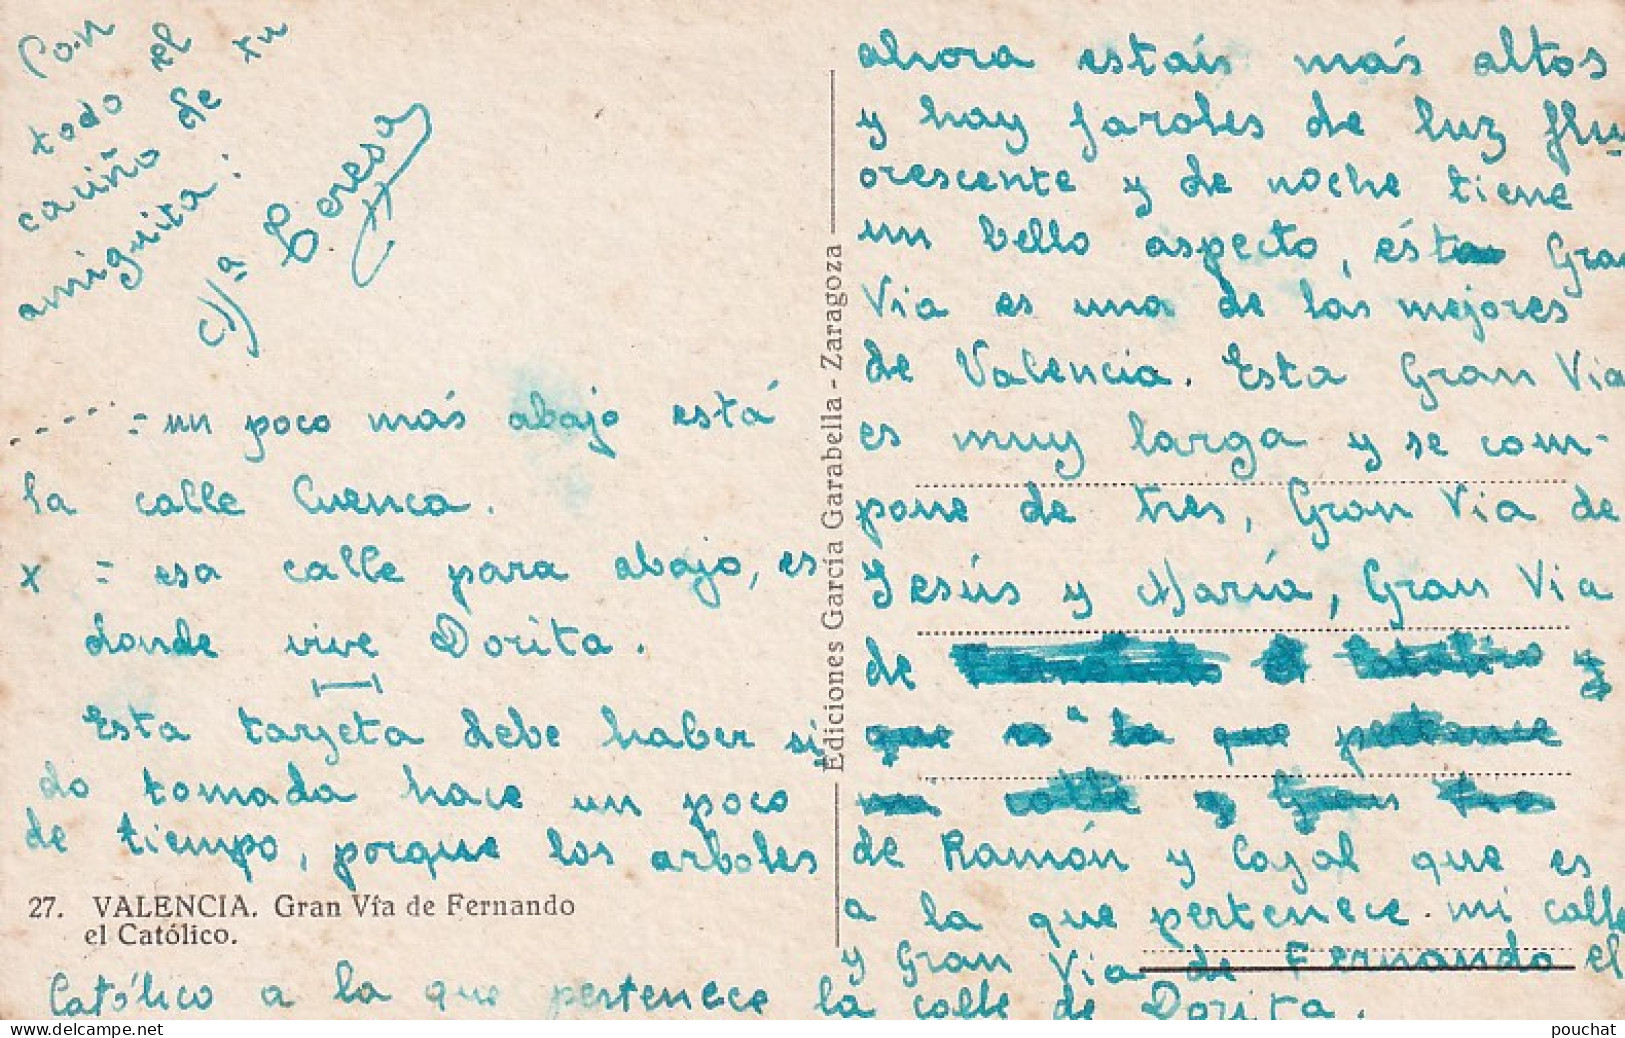 Con
todo el
cariño de tu
amiguita:
Mª Teresa
----- = un poco más abajo está
la calle Cuenca.
x = esa calle para abajo, es
donde vive Dorita.
Esta tarjeta debe haber si
do tomada hace un poco
de tiempo, porque los arboles
27. VALENCIA. Gran Vía de Fernando
el Católico.
Ediciones García Garabella - Zaragoza
ahora estáis más altos
y hay faroles de luz flu
orescente y de noche tiene
un bello aspecto, ésta Gran
Via es una de las mejores
de Valencia. Esta Gran Via
es muy larga y se com-
pone de tres, Gran Via de
Jesús y María, Gran Via
de
que es a la que pertenece
mi calle y Gran Via
de Ramón y Cajal que es
a la que pertenece mi calle
y Gran Via de Fernando el
Católico a la que pertenece la calle de Dorita.
www.delcampe.net
pouchat